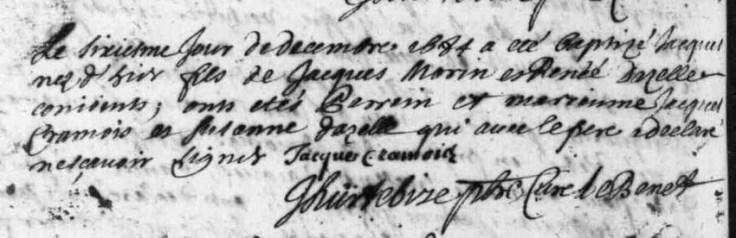 Le sixiesme Jour de decembre 1684 a eté Baptizé Jacques
nez d'hier fils de Jacques Morin et Renée dazelle
conioints; onts etés Perrein et marrienne Jacques
Cramois et Susanne dazelle qui avec le pere a declaré
ne sçavoir signer Jacques Cramois
Heurtebize pbre Curé